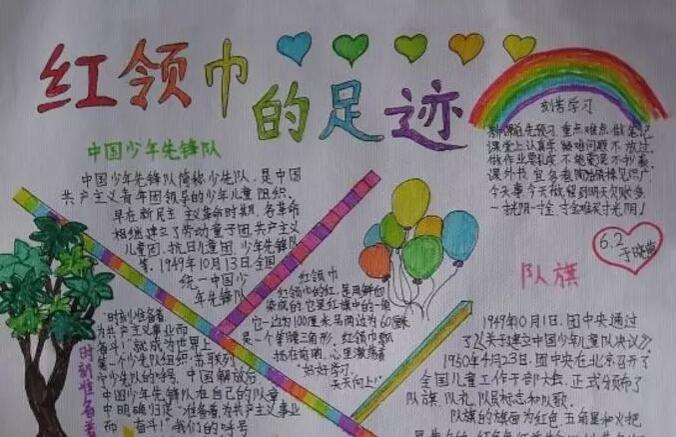 红领巾
的足迹
中国少年先锋队
中国少年先锋队简称少先队,是中
共产主义青年团领导的少年儿童组织.
早在新民主主义革命时期,各革命
相继建立了劳动童子团,共产主义
儿童团,抗日儿童团,少年先锋队
等,1949年10月13日全国
统一中国少
年先锋队
刻苦学习
新课道先预习,重点难点做笔记
课堂上认真学 疑难问题不放过
做作业要礼成 不能
课外书 宜多看
今天事今天做
一寸光阴一寸金 寸金难买寸光阴!
6.2
于晓
红领巾
红领巾的红,是用鲜血
染成的,它是红旗中的一角
它一边为100厘米另两边为60厘米
是一个等腰三角形,红领巾飘
扬在前胸,心里激荡着
"好好学习,
天天向上!"
时刻准备着
"时刻准备着,
为共产主义事业而
奋斗!"就成为世界上
第一个少先队组织:苏联列
宁少先队的呼号,中国解放后,
中国少年先锋队在自己的队章
中明确归定"准备着,为共产主义事业
而奋斗!"我们的呼号
队旗
1949年10月1日,团中央通过
了《关于建立中国少年儿童队决议》
1950年4月23日,团中央在北京召开了
全国儿童工作干部大会,正式颁布了
队旗,队礼,队员标志和队歌.
队旗的旗面为红色,五角星和火把